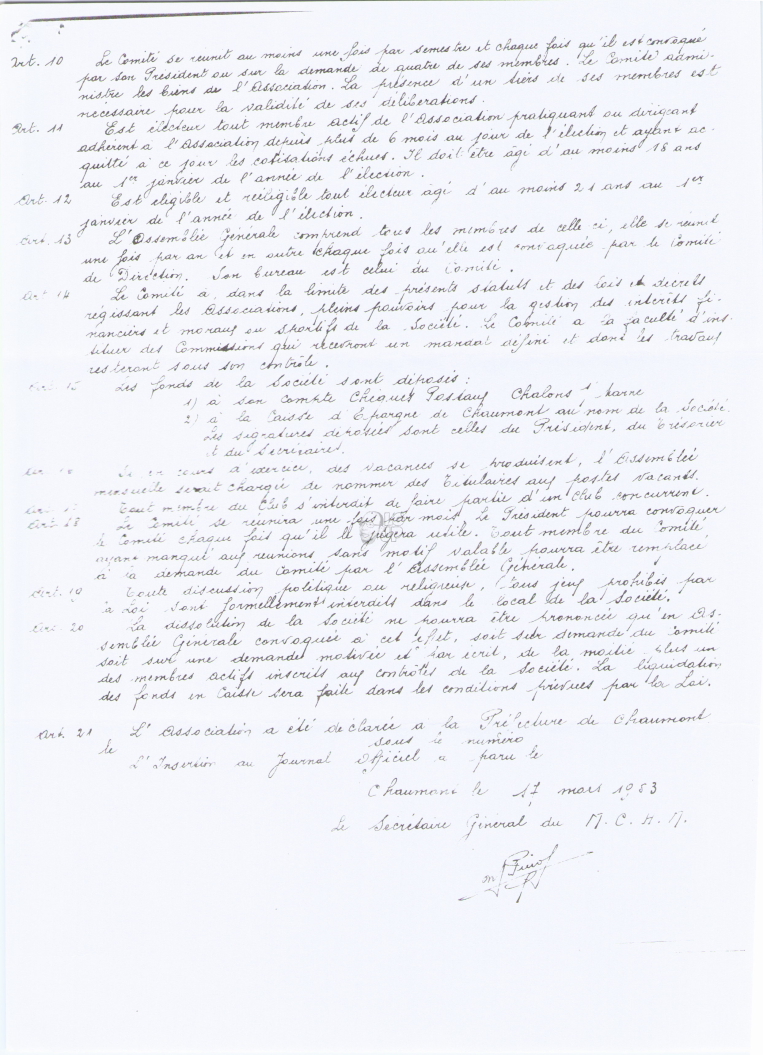 Art. 10 Le Comité se reunit au moins une fois par semestre et chaque fois qu'il est convoqué
par son Président ou sur la demande de quatre de ses membres. Le Comité admi-
nistre les biens de l'Association. La présence d'un tiers de ses membres est
nécessaire pour la validité de ses délibérations.
Art. 11 Est électeur tout membre actif de l'Association pratiquant ou dirigeant
adhérent à l'Association depuis plus de 6 mois au jour de l'élection et ayant ac-
quitté à ce jour les cotisations échues. Il doit être âgé d'au moins 18 ans
au 1er janvier de l'année de l'élection.
Art. 12 Est eligible et rééligible tout électeur âgé d'au moins 21 ans au 1er
janvier de l'année de l'élection.
Art. 13 L'Assemblée Générale comprend tous les membres de celle ci, elle se réunit
une fois par an et en outre chaque fois qu'elle est convoquée par le Comité
de Direction. Son bureau est celui du Comité.
Art 14 Le Comité a, dans la limite des présents statuts et des lois et decrets
regissant les Associations, pleins pouvoirs pour la gestion des intérêts fi-
nanciers et moraux ou sportifs de la Société. Le Comité a la faculté d'ins-
tituer des Commissions qui recevront un mandat défini et dont les travaux
resteront sous son contrôle.
Art. 15 Les fonds de la Société sont déposés :
1) à son Compte Chèques Postaux Chalons s/ Marne
2) à la Caisse d'Epargne de Chaumont au nom de la Société.
Les signatures déposées sont celles du Président, du Trésorier
et du Secrétaire.
Si en cours d'exercice, des vacances se produisent, l'Assemblée
mensuelle serait chargée de nommer des Titulaires aux postes vacants.
Tout membre du Club s'interdit de faire partie d'un club concurrent.
Art. 18 Le Comité se réunira une fois par mois. Le Président pourra convoquer
le Comité chaque fois qu'il le jugera utile. Tout membre du Comité
ayant manqué aux reunions sans motif valable pourra être remplacé
à la demande du Comité par l'Assemblée Générale.
Art. 19 Toute discussion politique ou religieuse, tous jeux prohibés par
la Loi sont formellement interdits dans le local de la Société.
Art. 20 La dissolution de la Société ne pourra être prononcée qu'en As-
semblée Générale convoquée à cet effet, soit sur demande du Comité
soit sur une demande motivée et par écrit, de la moitié plus un
des membres actifs inscrits aux contrôles de la Société. La liquidation
des fonds en Caisse sera faite dans les conditions prévues par la Loi.
Art. 21 L'Association a été déclarée à la Préfecture de Chaumont
le sous le numéro
L'Insertion au Journal Officiel a paru le
Chaumont le 17 mars 1983
Le Secrétaire Général du M.C.H.M.